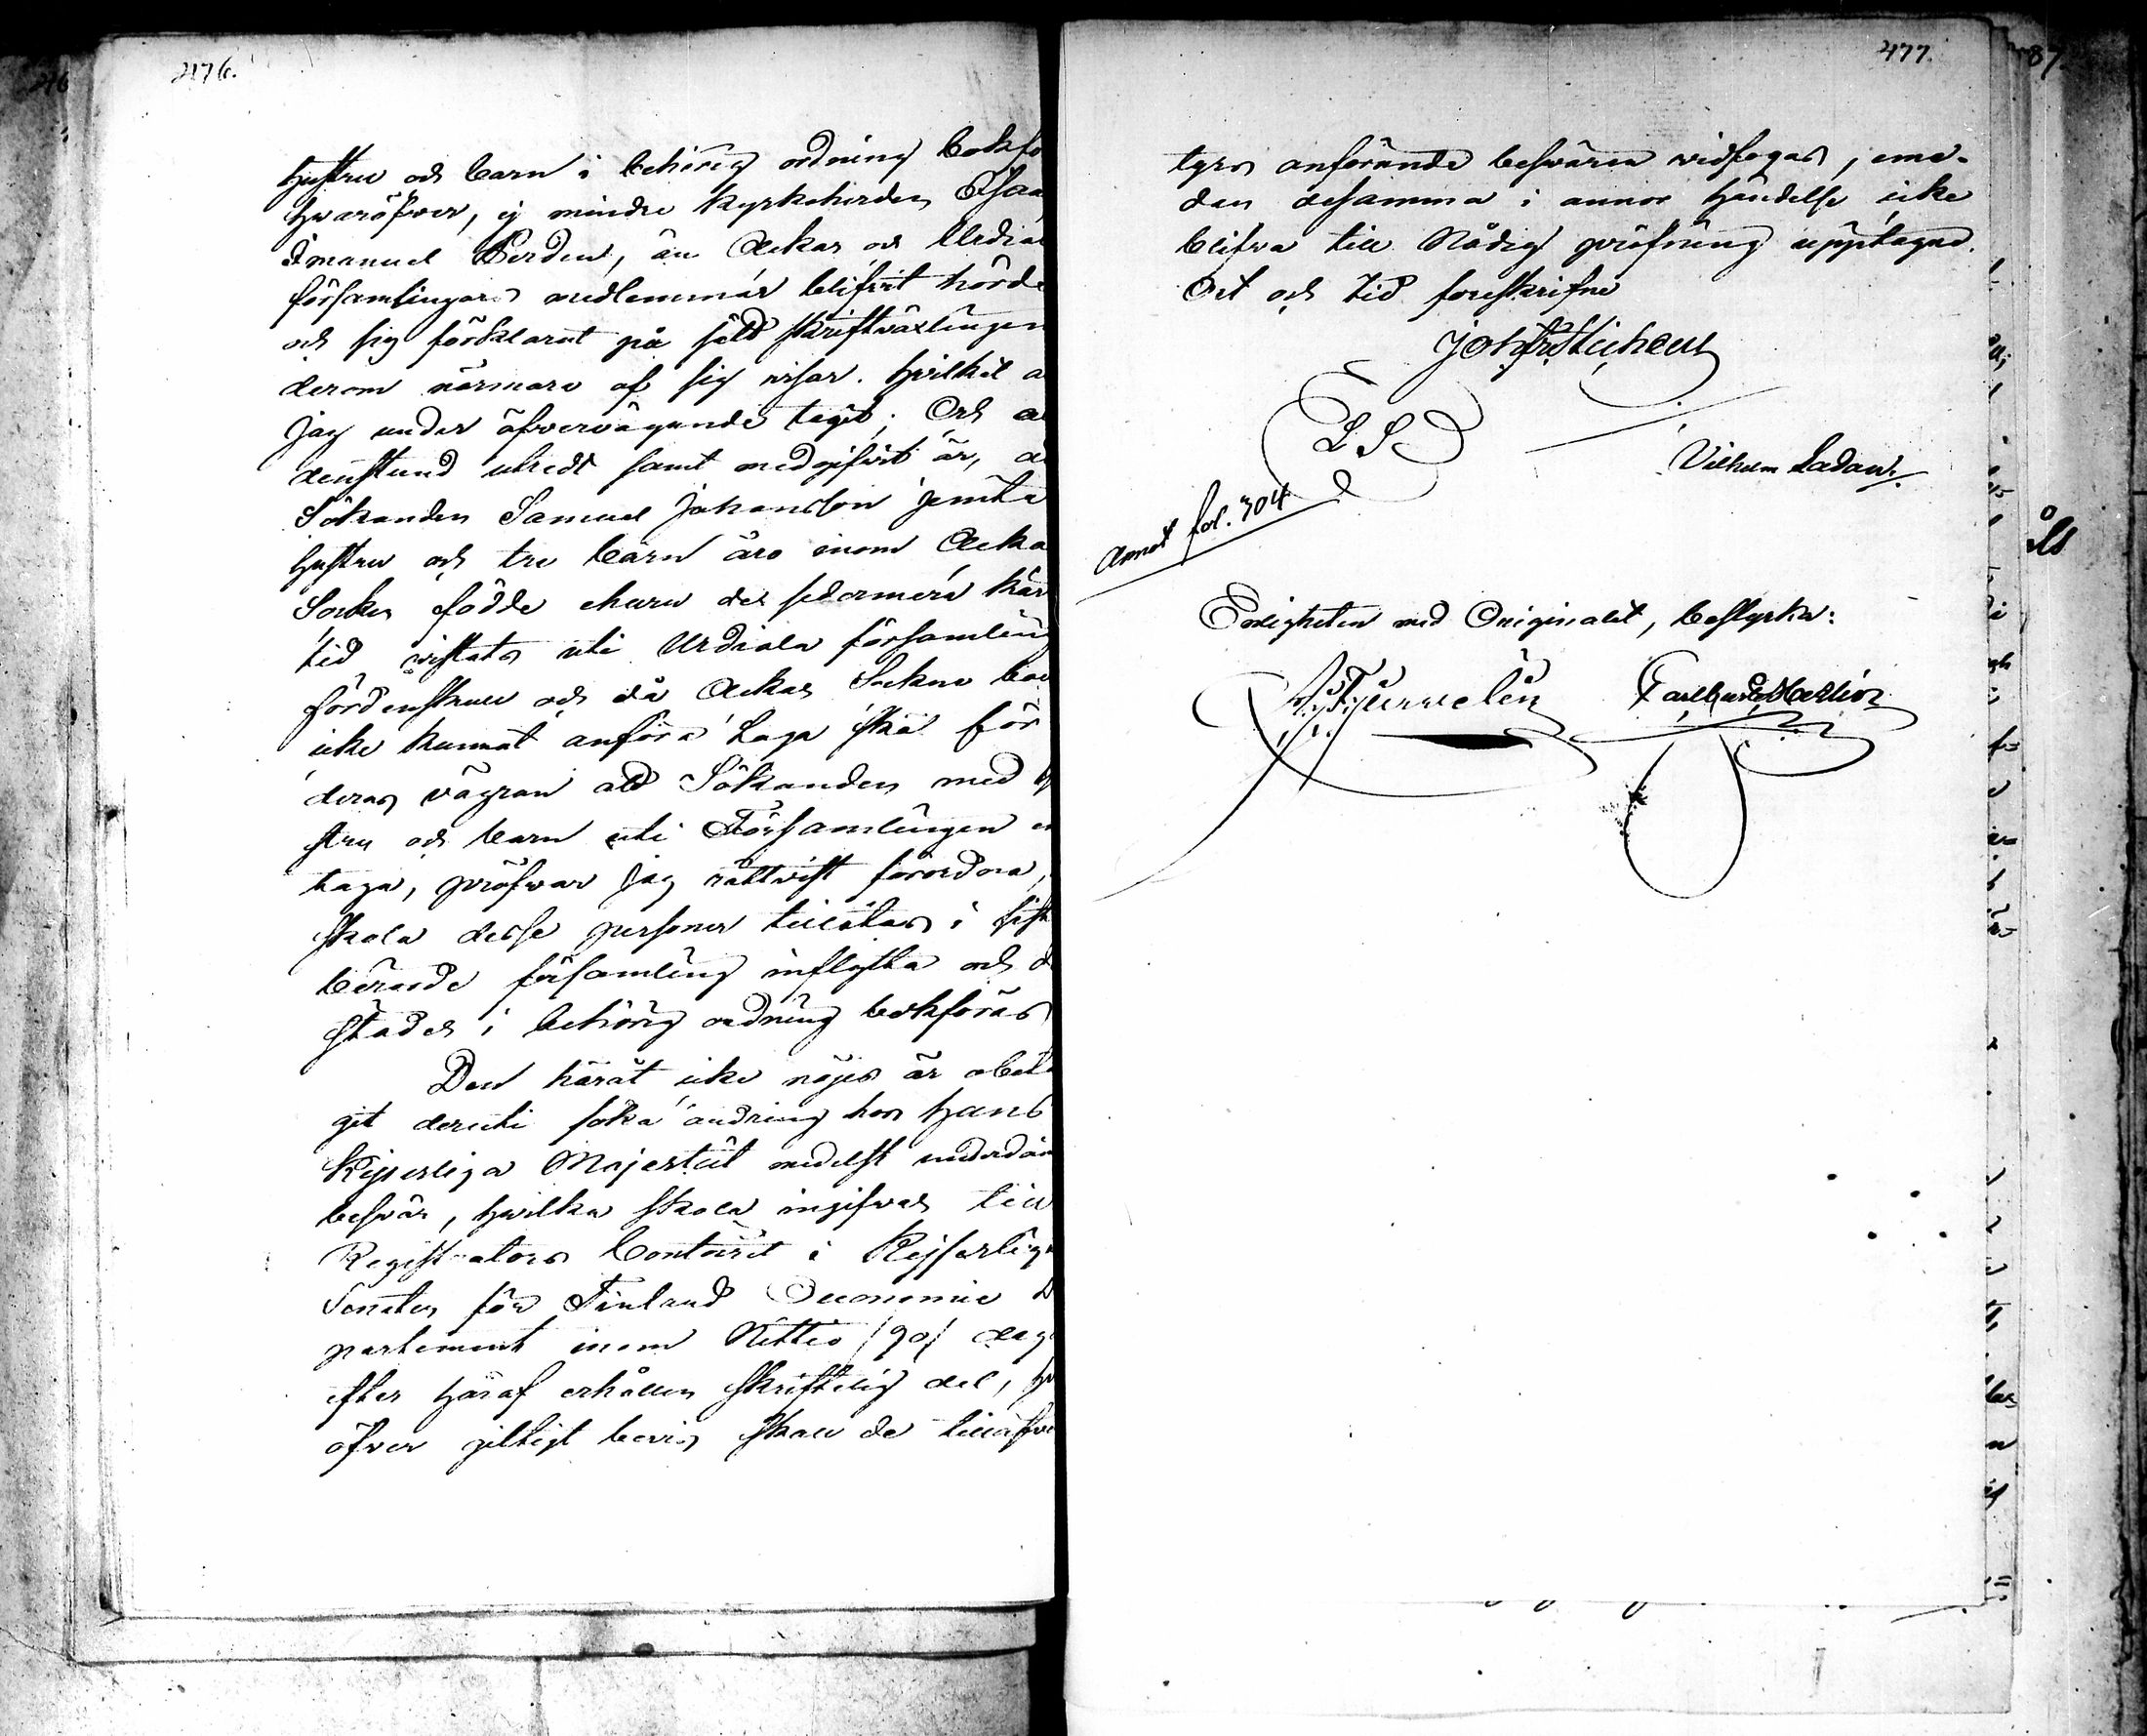 476.
hustru och barn i behörig ordning bokfö
hvaröfver, ej mindre Kyrkoherden Esaa
Emanuel Perden, än Ackas och Urdiala
församlingars medlemmar blifvit hörde
och sig förklarat på sätt skriftväxlingen
derom närmare af sig visar. hvilket a
jag under öfvervägande tagit; Och al
denstund utredt samt medgifvit är, a
Sökanden Samuel Johansson jemte
hustru och tre barn äro inom Acka
Socken födde ehuru de sedermera kår
tid vistats uti Urdiala församling
fördenskull och då Ackas Sokne bo
icke kunnat anföra Laga skäl för
deras vägran att Sökanden med h
stru och barn uti Församlingen e
taga, pröfvar jag rättvist förordna,
skola desse personer tillåtas i sist
berörde församling inflytta och d
städes i behörig ordning bokföras
Den häråt icke nöjes är obeta
git deruti söka ändring hos Hans
Kejserliga Majestät medelst underdån
besvär, hvilka skola ingifvas till
Registrators Contoiret i Kejserlig
Senaten för Finland Oeconomie D
partement inom Nittio /90/ dag
efter häraf erhållen skriftelig del, hv
öfver giltigt bevis skall de tillärfve
477.
tyrs anförande besvären vidfogas, eme-
dan desamma i annor händelse icke
blifva till Nådig pröfning upptagne.
Ort och tid förestkrifne
L S
Vilhelm Ladau
Annot fol. 304
Enligheten med Originalet, bestyrka: